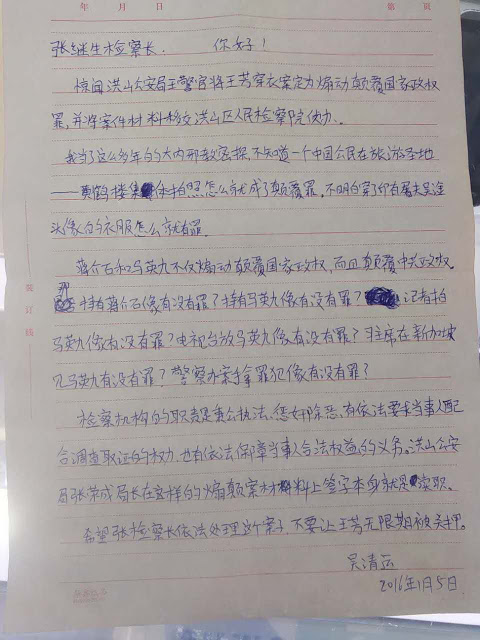 年 月 日 第 页
张继生检察长. 你好！
惊闻洪山公安局王警官将王芳穿衣案定为煽动颠覆国家政权
罪,并将案件材料移交洪山区人民检察院侦办.
我当了这么多年的大内刑教密探,不知道一个中国公民在旅游圣地
——黄鹤楼集体拍照怎么就成了颠覆罪,不明白穿了印有屠夫吴淦
头像的衣服怎么就有罪.
蒋介石和马英九不仅煽动颠覆国家政权,而且颠覆中共政权.
那持有蒋介石像有没有罪？持有马英九像有没有罪？记者拍
马英九像有没有罪？电视台放马英九像有没有罪？习主席在新加坡
见马英九有没有罪？警察办案手拿罪犯像有没有罪？
检察机构的职责是秉公执法、惩奸除恶,有依法要求当事人配
合调查取证的权力,也有依法保障当事人合法权益的义务.洪山公安
局张荣成局长在这样的煽颠案材料上签字本身就是渎职.
希望张检察长依法处理这个案子,不要让王芳无限期被关押.
吴清运
2016年1月5日
装订线